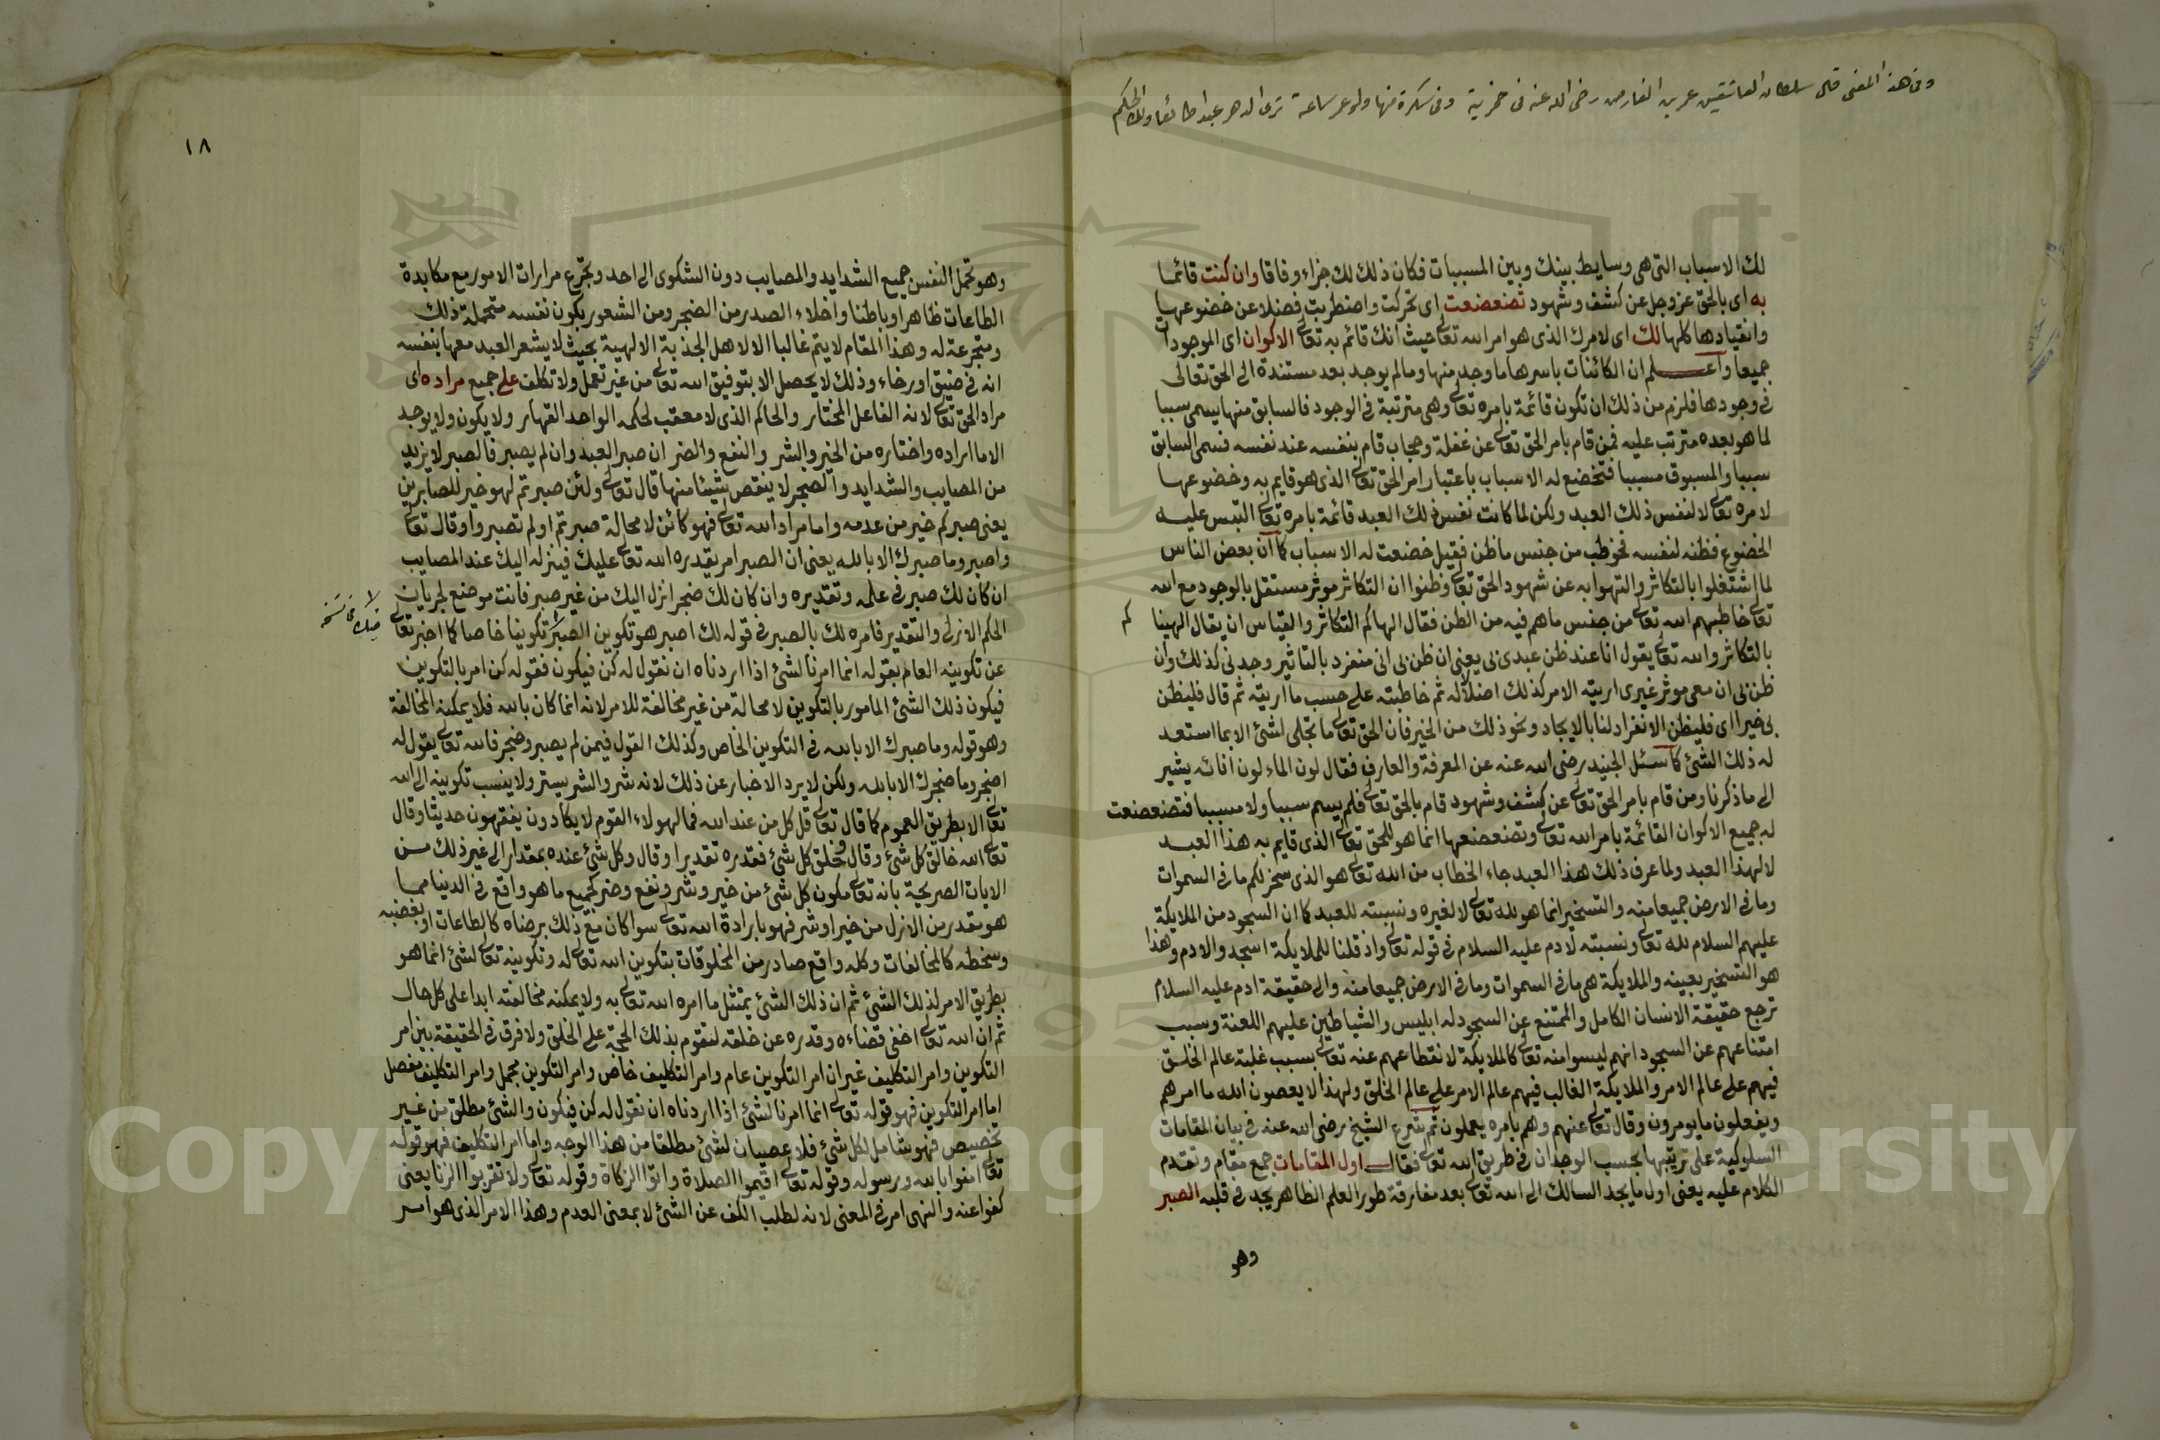 وفى هذا المعنى قال سلطان العاشقين عمر بن الفارض رضى الله عنه فى خمرية وفى سكرة منها ولو عمر ساعة ترى الدهر عبدا طائعا ولك الحكم
لك الاسباب التى هى وسايط بينك وبين المسببات فكان ذلك لك جزاء وفاقا وان كنت قائما
به اى بالحق عز وجل عن كشف وشهود تضعضعت اى تحركت واضطربت فضلا عن خضوعها
وانقيادها كلها لك اى لامرك الذى هو امر الله تعالى حيث انك قائم به تعالى الاكوان اى الموجودات
جميعا واعلم ان الكائنات باسرها ما وجد منها وما لم يوجد بعد مستندة الى الحق تعالى
فى وجودها فلزم من ذلك ان تكون قائمة بامره تعالى وهى مترتبة فى الوجود فالسابق منها يسمى سببا
لما هو بعده مترتب عليه فمن قام بامر الحق تعالى عن غفلة وحجاب قام بنفسه عند نفسه فسمى السابق
سببا والمسبوق مسببا فتخضع له الاسباب باعتبار امر الحق تعالى الذى هو قايم به وخضوعها
لامره تعالى لا لنفس ذلك العبد ولكن لما كانت نفس ذلك العبد قائمة بامره تعالى التبس عليه
الخضوع فظنه لنفسه فخوطب من جنس ما ظن فقيل خضعت له الاسباب كما ان بعض الناس
لما اشتغلوا بالتكاثر والتهوا به عن شهود الحق تعالى وظنوا ان التكاثر موثر مستقل بالوجود مع الله
تعالى خاطبهم الله تعالى من جنس ما هم فيه من الظن فقال الهاكم التكاثر والقياس ان يقال الهينا
كم
بالتكاثر والله تعالى يقول انا عند ظن عبدى بى يعنى ان ظن بى انى منفرد بالتاثير وجدنى كذلك وان
ظن بى ان معى موثر غيرى اريته الامر كذلك اضلالا له ثم خاطبته على حسب ما اريته ثم قال فليظن
بى خيرا اى فليظن الانفراد لنا بالايجاد ونحو ذلك من الخير فان الحق تعالى ما تجلى لشئ الا بما استعد
له ذلك الشئ كما سئل الجنيد رضى الله عنه عن المعرفة والعارف فقال لون الماء لون انائه يشير
الى ما ذكرنا ومن قام بامر الحق تعالى عن كشف وشهود قام بالحق تعالى فلم يسم سببا ولا مسببا فتضعضعت
له جميع الاكوان القائمة بامر الله تعالى وتضعضعها انما هو للحق تعالى الذى قايم به هذا العبد
لا لهذا العبد ولما عرف ذلك هذا العبد جاء الخطاب من الله تعالى هو الذى سخر لكم ما فى السموات
وما فى الارض جميعا منه والتسخير انما هو لله تعالى لا لغيره ونسبته للعبد كما ان السجود من الملايكة
عليهم السلام لله تعالى ونسبته لادم عليه السلام فى قوله تعالى واذ قلنا للملايكة اسجدوا لادم وهذا
هو التسخير بعينه والملايكة هى ما فى السموات وما فى الارض جميعا منه والى حقيقة ادم عليه السلام
ترجع حقيقة الانسان الكامل والممتنع عن السجود له ابليس والشياطين عليهم اللعنة وسبب
امتناعهم عن السجود انهم ليسوا منه تعالى كالملايكة لانقطاعهم عنه تعالى بسبب غلبة عالم الخلق
فيهم على عالم الامر والملايكة الغالب فيهم عالم الامر على عالم الخلق ولهذا لا يعصون الله ما امرهم
ويفعلون ما يومرون وقال تعالى عنهم وهم بامره يعملون ثم شرع الشيخ رضى الله عنه فى بيان المقامات
السلوكية على ترتيبها بحسب الوجدان فى طريق الله تعالى فقال اول المقامات جمع مقام وتقدم
الكلام عليه يعنى اول ما يجد السالك الى الله تعالى بعد مفارقة طور العلم الظاهر يجد فى قلبه الصبر
وهو
١٨
وهو تحمل النفس جميع الشدايد والمصايب دون الشكوى الى احد وتجرع مرارات الامور مع مكابدة
الطاعات ظاهرا وباطنا واخلاء الصدر من الضجر ومن الشعور بكون نفسه متحملة ذلك
ومتجرعة له وهذا المقام لا يتم غالبا الا لاهل الجذبة الالهية بحيث لا يشعر العبد معها بنفسه
انه فى ضيق او رخاء وذلك لا يحصل الا بتوفيق الله تعالى من غير تعمل ولا تكلف على جميع مراده اى
مراد الحق تعالى لانه الفاعل المختار والحاكم الذى لا معقب لحكمه الواحد القهار ولا يكون ولا يوجد
الا ما اراده واختاره من الخير والشر والنفع والضر ان صبر العبد وان لم يصبر فالصبر لا يزيد
من المصايب والشدايد والضجر لا ينقص شيئا منها قال تعالى ولئن صبرتم لهو خير للصابرين
يعنى صبركم خير من عدمه واما مراد الله تعالى فهو كائن لا محالة صبرتم او لم تصبروا وقال تعالى
واصبر وما صبرك الا بالله يعنى ان الصبر امر يقدره الله تعالى عليك فينزله اليك عند المصايب
ان كان لك صبر فى علمه وتقديره وان كان لك ضجر انزل اليك من غير صبر فانت موضع لجريان
الحكم الازلى والتقدير فامره لك بالصبر فى قوله لك اصبر هو تكوين الصبر تكوينا خاصا كما اخبر تعالى
عن تكوينه العام بقوله انما امرنا لشئ اذا اردناه ان نقول له كن فيكون فقوله كن امر بالتكوين
فيكون ذلك الشئ المامور بالتكوين لا محالة من غير مخالفة للامر لانه انما كان بالله فلا يمكنه المخالفة
وهو قوله وما صبرك الا بالله فى التكوين الخاص وكذلك القول فيمن لم يصبر وضجر فالله تعالى يقول له
اضجر وما ضجرك الا بالله ولكن لا يرد الاخبار عن ذلك لانه شر والشر يستر ولا ينسب تكوينه الى الله
تعالى الا بطريق العموم كما قال تعالى قل كل من عند الله فمال هولاء القوم لا يكادون يفقهون حديثا وقال
تعالى الله خالق كل شئ وقال وخلق كل شئ فقدره تقديرا وقال وكل شئ عنده بمقدار الى غير ذلك من
الايات الصريحة بانه تعالى مكون كل شئ من خير وشر ونفع وضر كجميع ما هو واقع فى الدنيا مما
هو مقدر من الازل من خير او شر فهو بارادة الله تعالى سوا كان مع ذلك برضاه كالطاعات او بغضبه
وسخطه كالمخالفات وكله واقع صادر من المخلوقات بتكوين الله تعالى له وتكوينه تعالى لشئ انما هو
بطريق الامر لذلك الشئ ثم ان ذلك الشئ يمتثل ما امره الله تعالى به ولا يمكنه مخالفته ابدا على كل حال
ثم ان الله تعالى اخفى قضاءه وقدره عن خلقه لتقوم بذلك الحجة على الخلق ولا فرق فى الحقيقة بين امر
التكوين وامر التكليف غير ان امر التكوين عام وامر التكليف خاص وامر التكوين مجمل وامر التكليف مفصل
اما امر التكوين فهو قوله تعالى انما امرنا لشئ اذا اردناه ان نقول له كن فيكون والشئ مطلق من غير
تخصيص فهو شامل لكل شئ فلا عصيان لشئ مطلقا من هذا الوجه واما امر التكليف فهو قوله
تعالى امنوا بالله ورسوله وقوله تعالى اقيموا الصلاة واتوا الزكاة وقوله تعالى ولا تقربوا الزنا يعنى
كفوا عنه والنهى امر فى المعنى لانه لطلب الكف عن الشئ لا بمعنى العدم وهذا الامر الذى هو امر